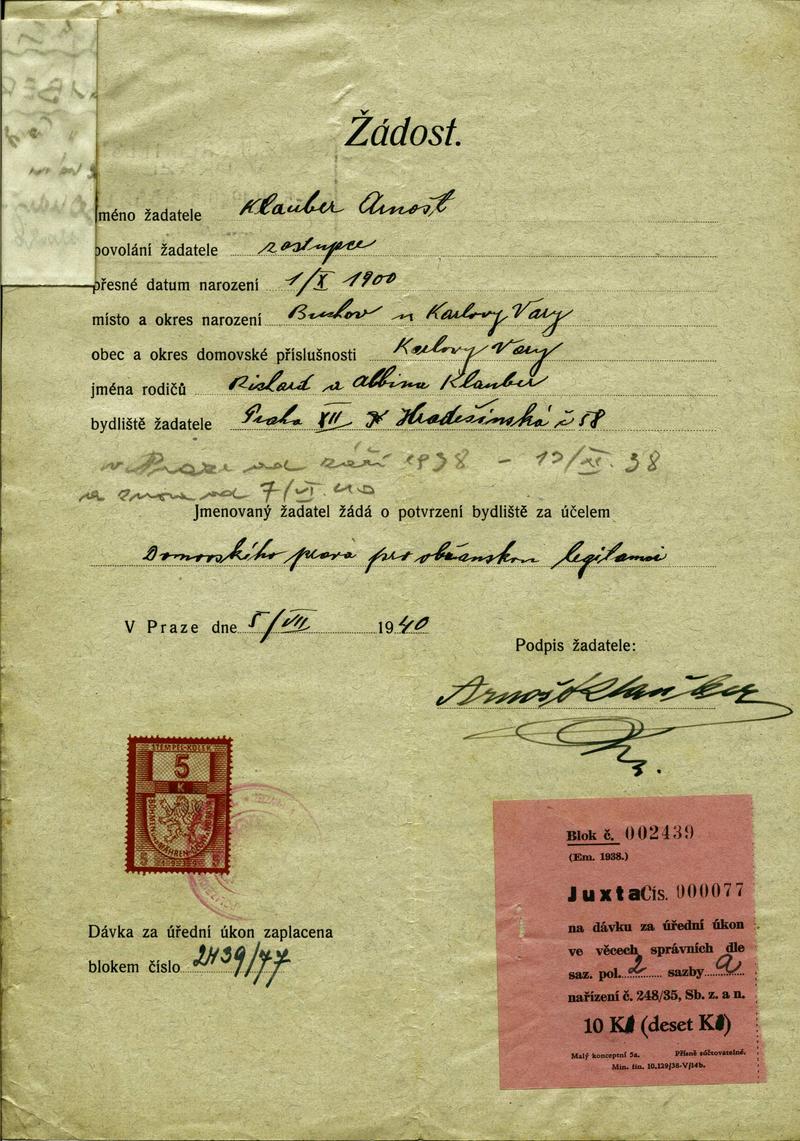 Žádost.
jméno žadatele Klauber Arnošt
povolání žadatele zástupce
přesné datum narození 1/X 1900
místo a okres narození n Karlovy Vary
obec a okres domovské příslušnosti Karlovy Vary
jména rodičů Richard a Albina Klauber
bydliště žadatele Praha XII Hradešínská č 58
v Praze od září 1938 - 38
a znovu od 7/VI. 40
Jmenovaný žadatel žádá o potvrzení bydliště za účelem
Domovského práva pro občanskou legitimaci
V Praze dne 5/VII 1940
Podpis žadatele:
Arnošt Klauber
STEMPEL-KOLEK
5
K
BÖHMEN u. MÄHREN
5 5
Dávka za úřední úkon zaplacena
blokem číslo 2439/77
Blok č. 002439
(Em. 1938.)
Juxta Čís. 000077
na dávku za úřední úkon
ve věcech správních dle
saz. pol. 2 sazby a
nařízení č. 248/35, Sb. z. a n.
10 K (deset K)
Malý konceptní 5a. Přísně súčtovatelné.
Min. fin. 10.129/38-V/14b.